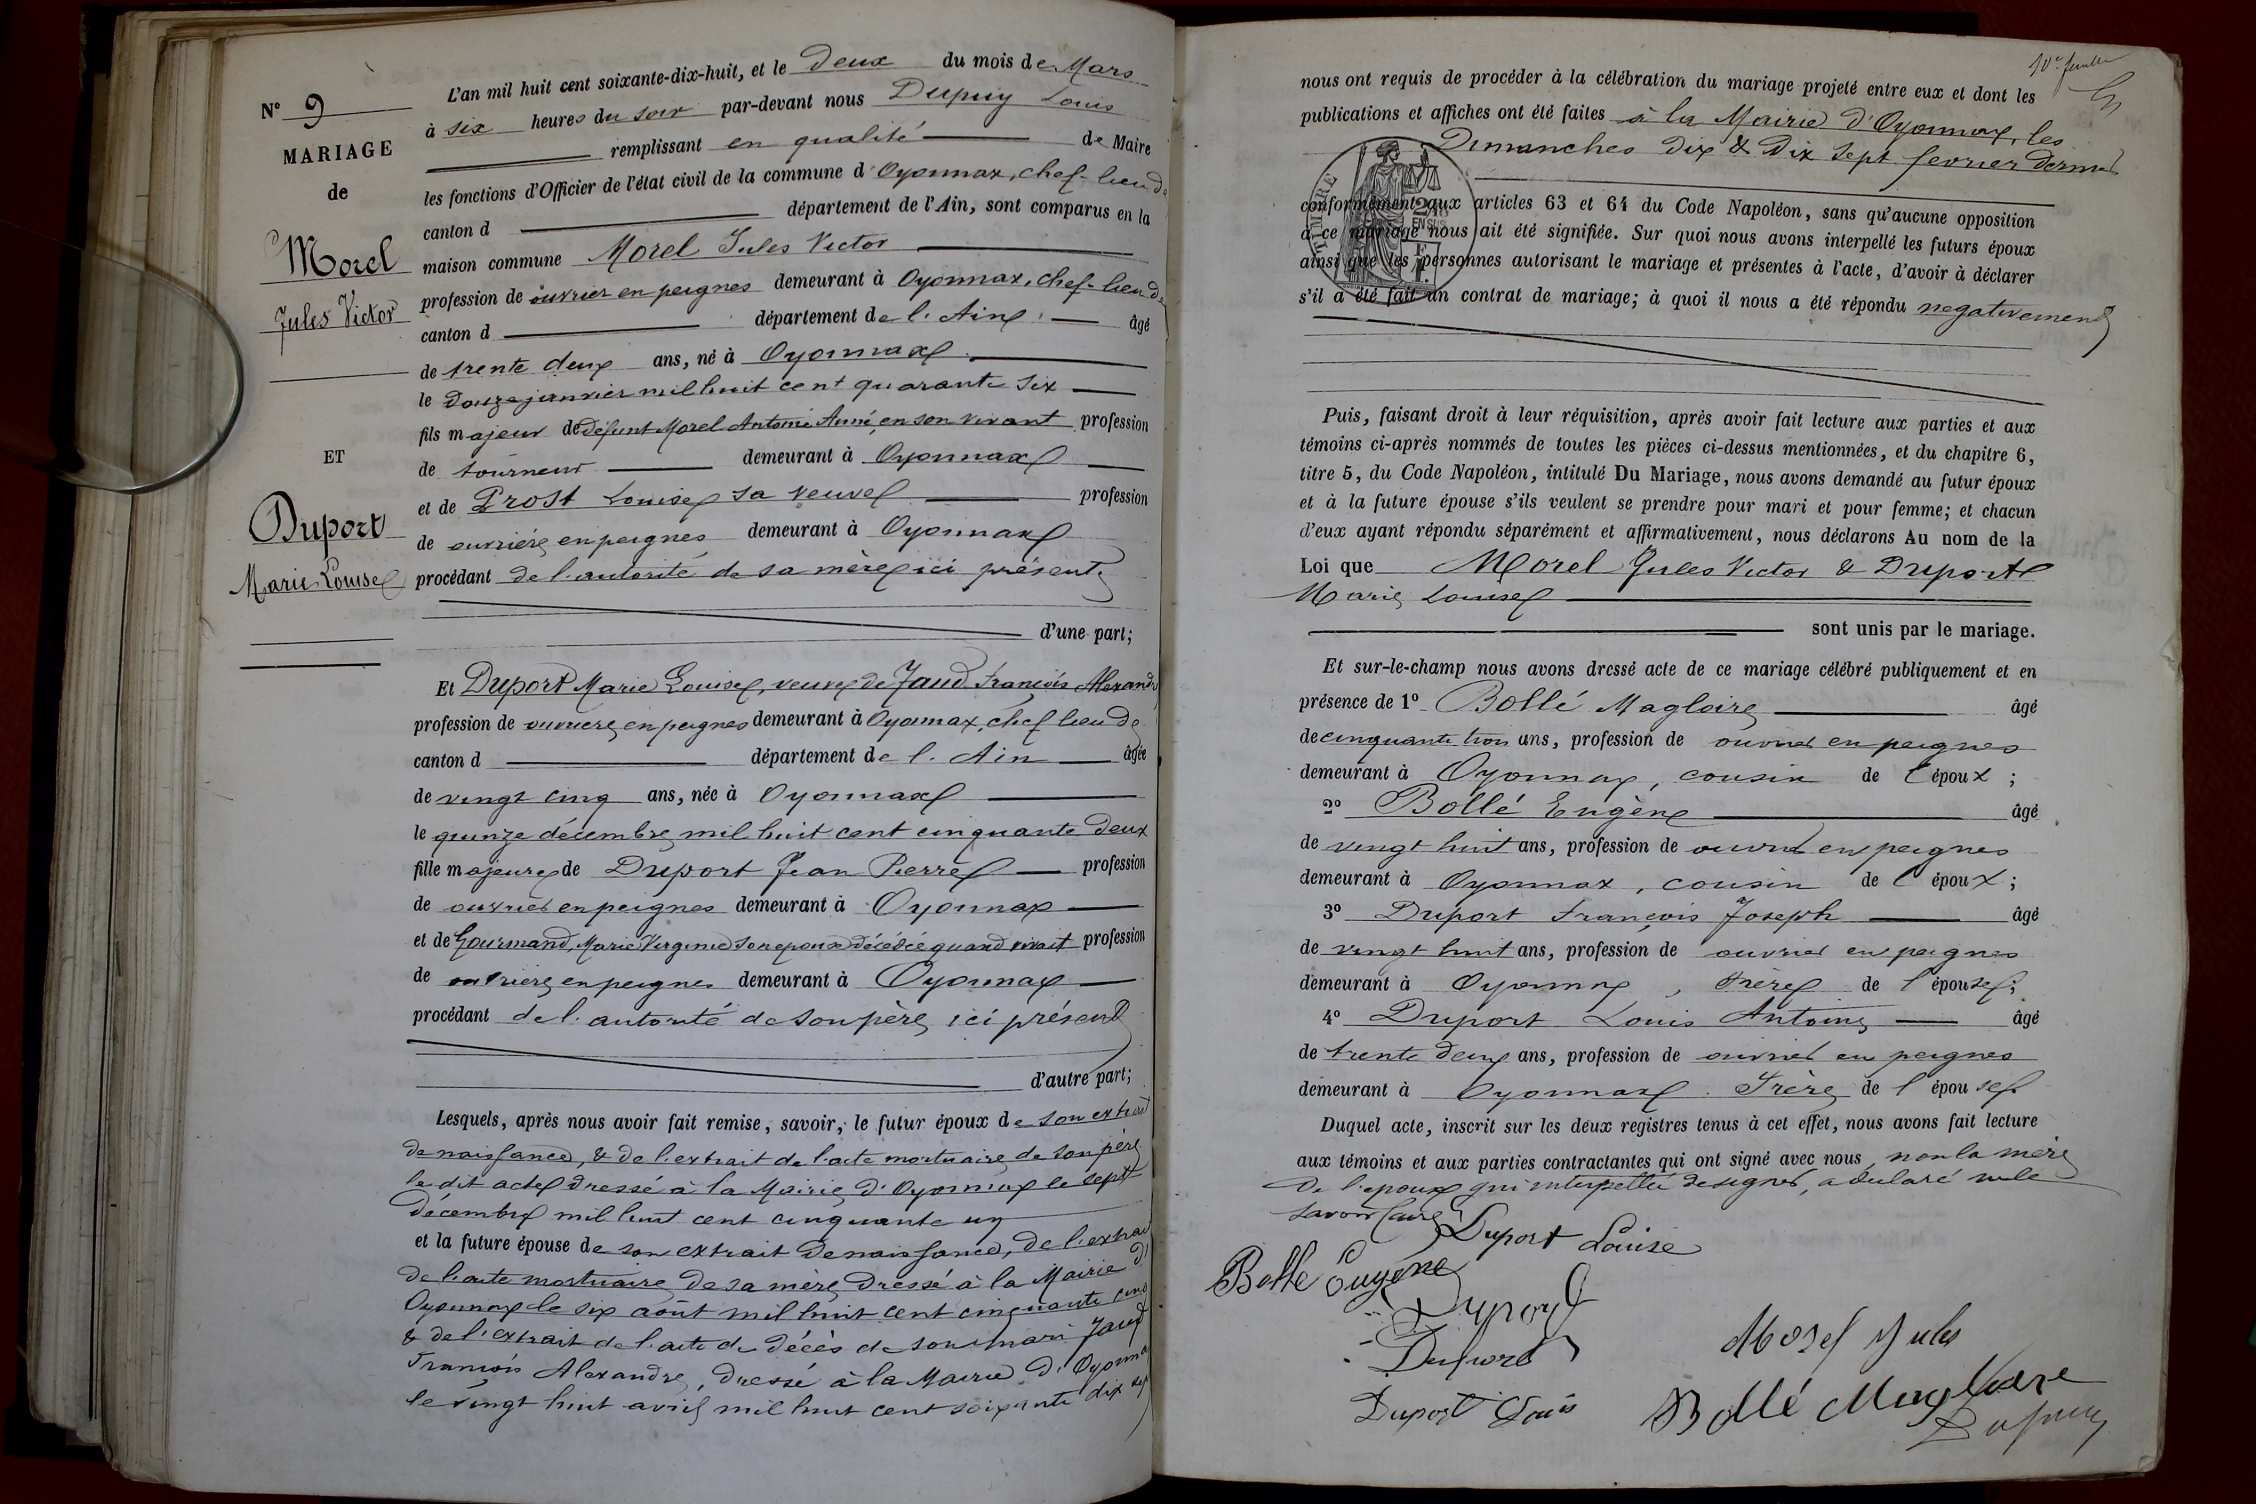 N° 9
MARIAGE
de
Morel
Jules Victor
ET
Duport
Marie Louise
L'an mil huit cent soixante-dix-huit, et le deux du mois de Mars
à six heures du soir par-devant nous Dupuy Louis
remplissant en qualité de Maire
les fonctions d'Officier de l'état civil de la commune d'Oyonnax, chef-lieu de
canton d département de l'Ain, sont comparus en la
maison commune Morel Jules Victor
profession de ouvrier en peignes demeurant à Oyonnax, chef-lieu de
canton d département de l'Ain, âgé
de trente deux ans, né à Oyonnax
le douze janvier mil huit cent quarante six
fils majeur de défunt Morel Antoine Aimé, en son vivant profession
de tourneur demeurant à Oyonnax
et de Prost Louise sa veuve profession
de ouvrière en peignes demeurant à Oyonnax
procédant de l'autorité de sa mère ici présente
d'une part;
Et Duport Marie Louise, veuve de Jaud François Alexandre
profession de ouvrière en peignes demeurant à Oyonnax, chef lieu de
canton d département de l'Ain âgée
de vingt cinq ans, née à Oyonnax
le quinze décembre mil huit cent cinquante deux
fille majeure de Duport Jean Pierre profession
de ouvrier en peignes demeurant à Oyonnax
et de Gourmand, Marie Virginie son epouse décédée quand vivait profession
de ouvrière en peignes demeurant à Oyonnax
procédant de l'autorité de son père, ici présent
d'autre part;
Lesquels, après nous avoir fait remise, savoir, le futur époux de son extrait
de naissance, & de l'extrait de l'acte mortuaire de son père
le dit acte dressé à la Mairie d'Oyonnax le sept
décembre mil huit cent cinquante un
et la future épouse de son extrait de naissance, de l'extrait
de l'acte mortuaire de sa mère dressé à la Mairie d'
Oyonnax le six août mil huit cent cinquante cinq
& de l'extrait de l'acte de décès de son mari Jaud
François Alexandre, dressé à la Mairie d'Oyonnax
le vingt huit avril mil huit cent soixante dix sept
10e feuille
nous ont requis de procéder à la célébration du mariage projeté entre eux et dont les
publications et affiches ont été faites à la Mairie d'Oyonnax, les
Dimanches dix & dix sept fevrier dernier
TIMBRE
EN SUS
conformément aux articles 63 et 64 du Code Napoléon, sans qu'aucune opposition
à ce mariage nous ait été signifiée. Sur quoi nous avons interpellé les futurs époux
ainsi que les personnes autorisant le mariage et présentes à l'acte, d'avoir à déclarer
s'il a été fait un contrat de mariage; à quoi il nous a été répondu negativement
Puis, faisant droit à leur réquisition, après avoir fait lecture aux parties et aux
témoins ci-après nommés de toutes les pièces ci-dessus mentionnées, et du chapitre 6,
titre 5, du Code Napoléon, intitulé Du Mariage, nous avons demandé au futur époux
et à la future épouse s'ils veulent se prendre pour mari et pour femme; et chacun
d'eux ayant répondu séparément et affirmativement, nous déclarons Au nom de la
Loi que Morel Jules Victor & Duport
Marie Louise
sont unis par le mariage.
Et sur-le-champ nous avons dressé acte de ce mariage célébré publiquement et en
présence de 1° Bollé Magloire âgé
de cinquante trois ans, profession de ouvrier en peignes
demeurant à Oyonnax, cousin de l'époux;
2° Bollé Eugène âgé
de vingt huit ans, profession de ouvrier en peignes
demeurant à Oyonnax, cousin de l'époux;
3° Duport François Joseph âgé
de vingt huit ans, profession de ouvrier en peignes
demeurant à Oyonnax, frère de l'épouse;
4° Duport Louis Antoine âgé
de trente deux ans, profession de ouvrier en peignes
demeurant à Oyonnax. Frère de l'épouse
Duquel acte, inscrit sur les deux registres tenus à cet effet, nous avons fait lecture
aux témoins et aux parties contractantes qui ont signé avec nous, non la mère
de l'epoux qui interpellée de signer, a déclaré ne le
savoir faire
Duport Louise
Bolle Eugene
Duport
Duport
Morel Jules
Duport Louis
Bollé Magloire
Dupuy